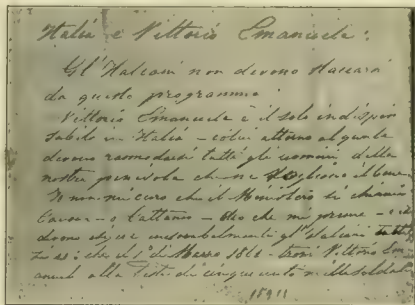 Italia e Vittorio Emanuele:
Gl'Italiani non devono staccarsi
da questo programma.
Vittorio Emanuele è il solo indispen
sabile in Italia – colui attorno al quale
devono rannodarsi tutti gli uomini della
nostra penisola che ne vogliono il bene.
Io non mi curo che il Ministero si chiami
Cavour – o Cattaneo – che mi preme – e che
devono esigere inesorabilmente gl'Italiani tutti
è: che il 1º di Marzo 1861 – trovi Vittorio Em
anuele alla testa di cinquecento mila soldati